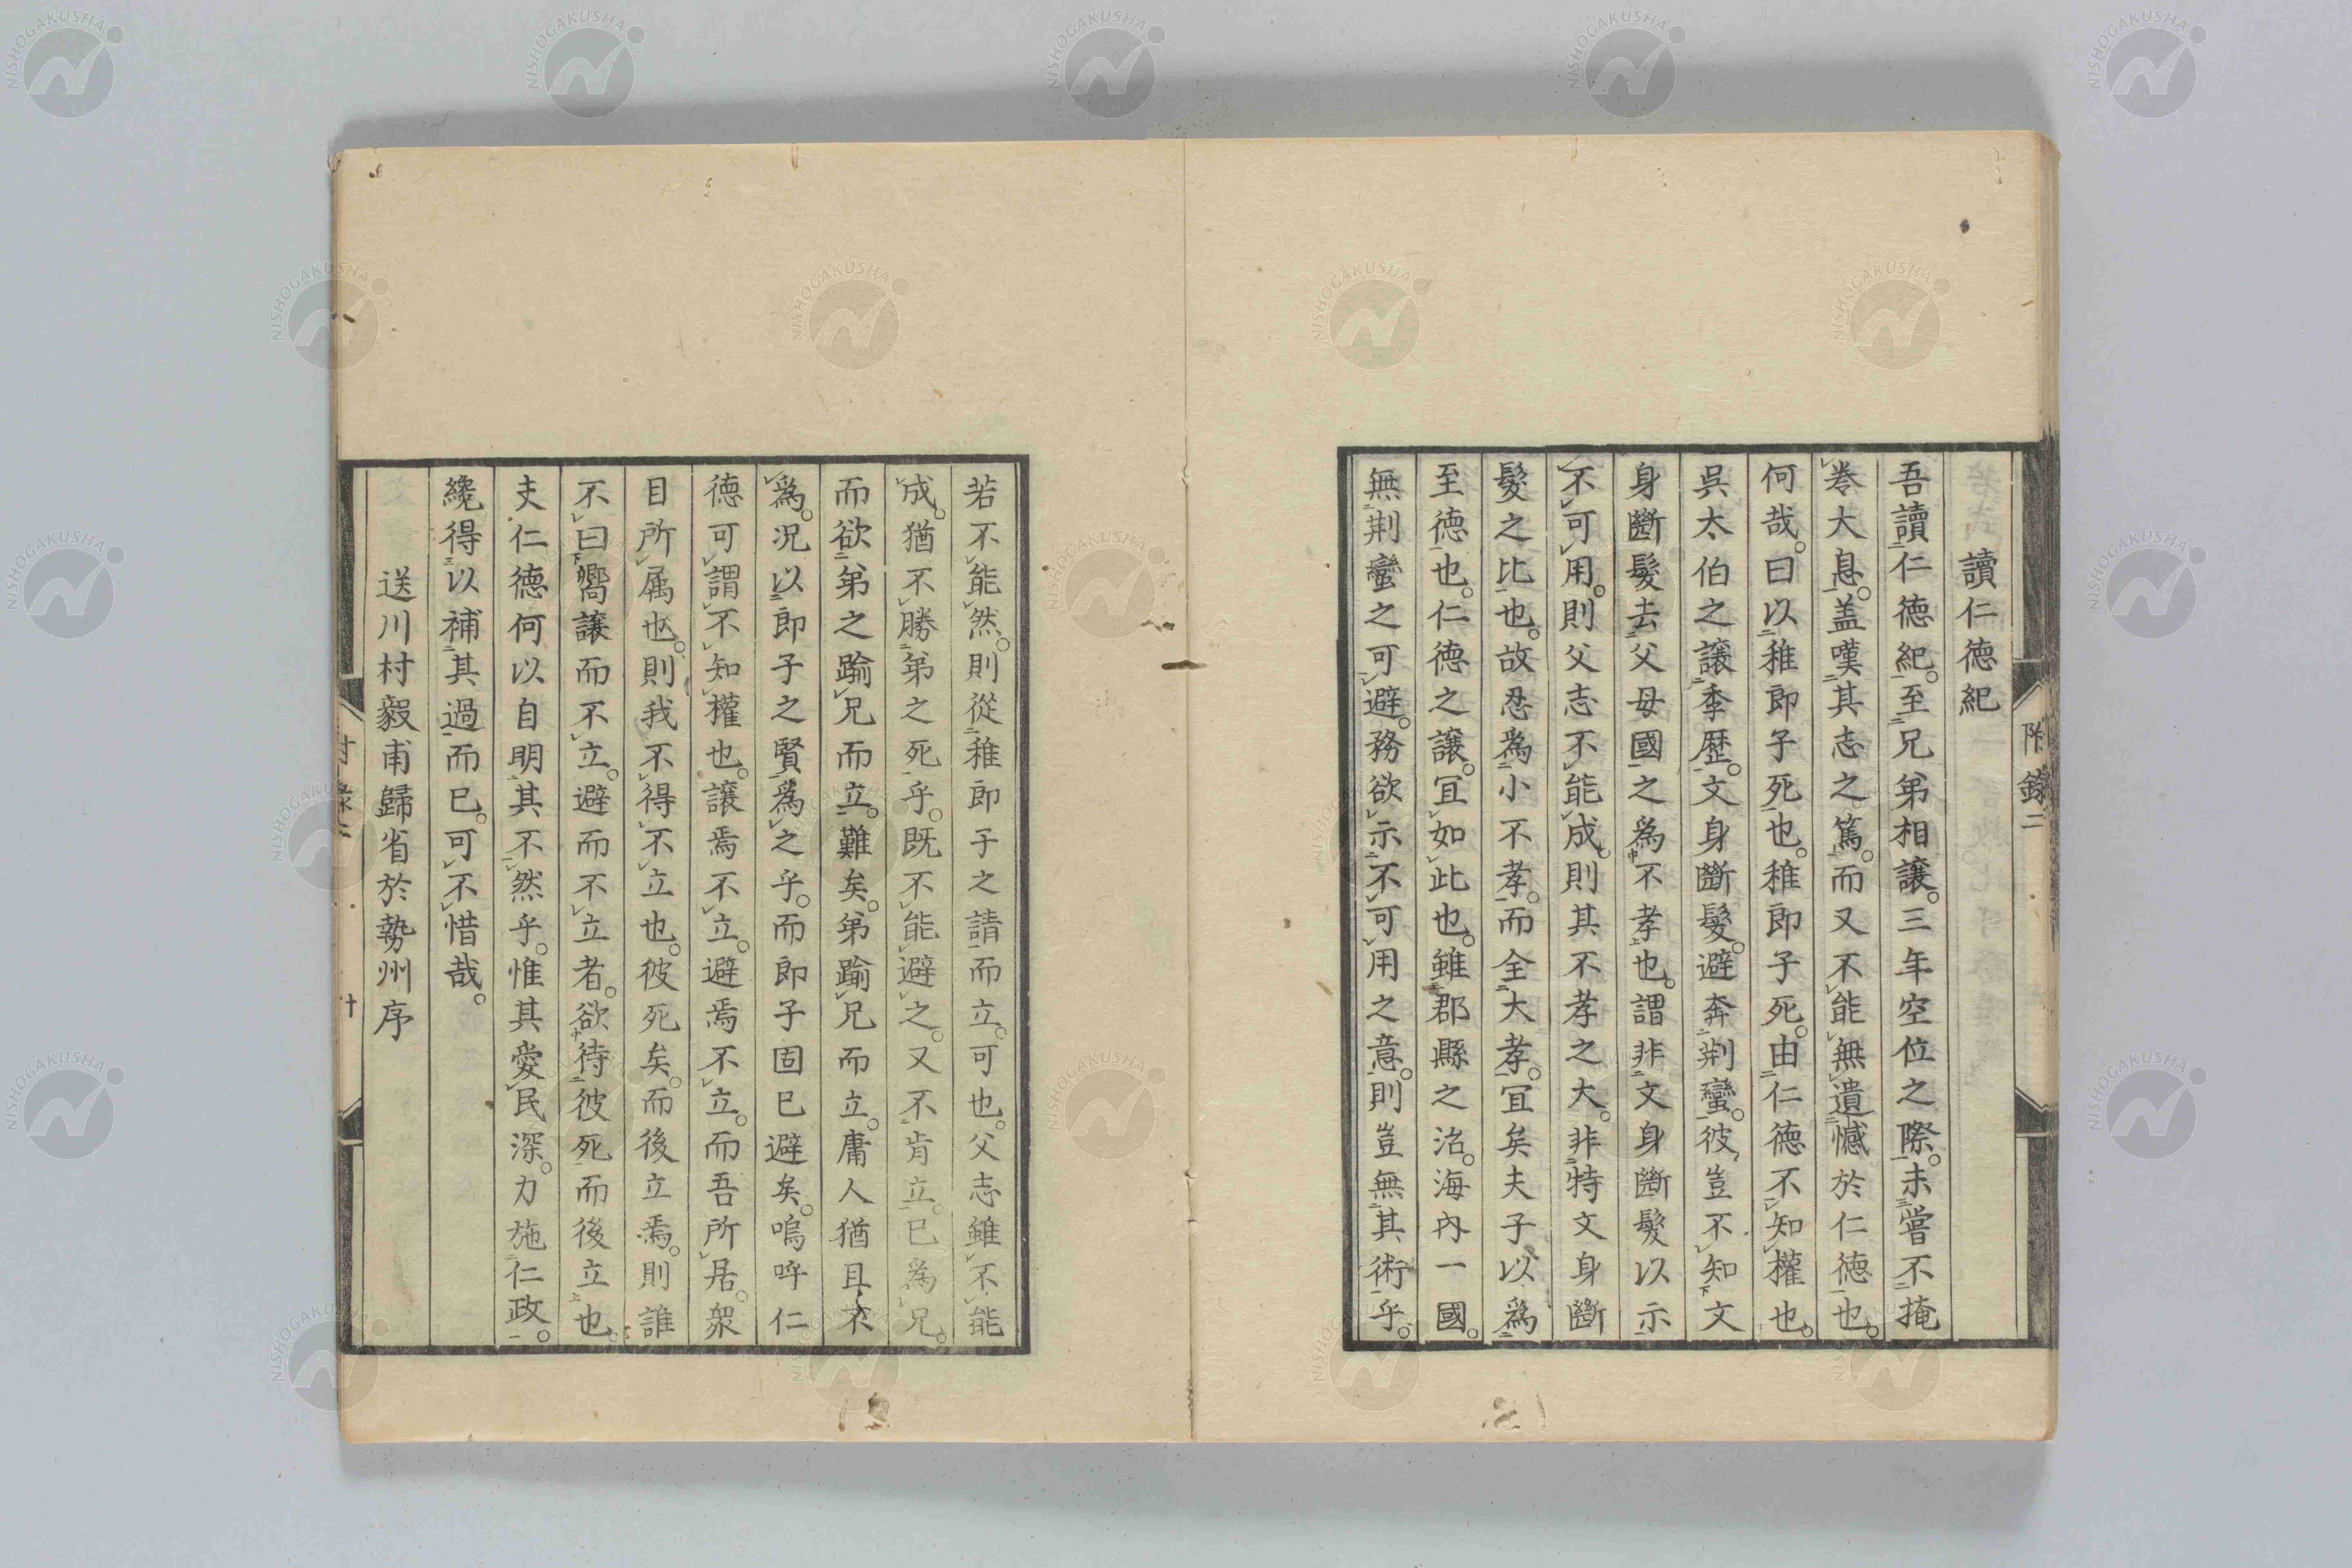 附錄二
讀仁徳紀
吾讀仁徳紀。至兄弟相讓。三年空位之際。未嘗不掩
巻大息。盖嘆其志之篤。而又不能無遺憾於仁徳也。
何哉。曰以稚郎子死也。稚郎子死。由仁徳不知權也。
呉太伯之讓季歴。文身斷髮。避奔荆蠻。彼豈不知文
身斷髮去父母國之為不孝也。謂非文身斷髮以示
不可用。則父志不能成。則其不孝之大。非特文身斷
髮之比也。故忍為小不孝。而全大孝。宜矣夫子以為
至徳也。仁徳之讓。宜如此也。雖郡縣之治。海内一國。
無荆蠻之可避。務欲示不可用之意。則豈無其術乎。
若不能然。則從稚郎子之請而立。可也。父志雖不能
成。猶不勝弟之死乎。既不能避之。又不肯立。已為兄。
而欲弟之踰兄而立。難矣。弟踰兄而立。庸人猶且不
為。況以郎子之賢為之乎。而郎子固已避矣。嗚呼仁
徳可謂不知權也。讓焉不立。避焉不立。而吾所居。衆
目所属也。則我不得不立也。彼死矣。而後立焉。則誰
不曰嚮讓而不立。避而不立者。欲待彼死而後立也。
夫仁徳何以自明其不然乎。惟其愛民深。力施仁政。
纔得以補其過而已。可不惜哉。
送川村毅甫歸省於勢州序
十